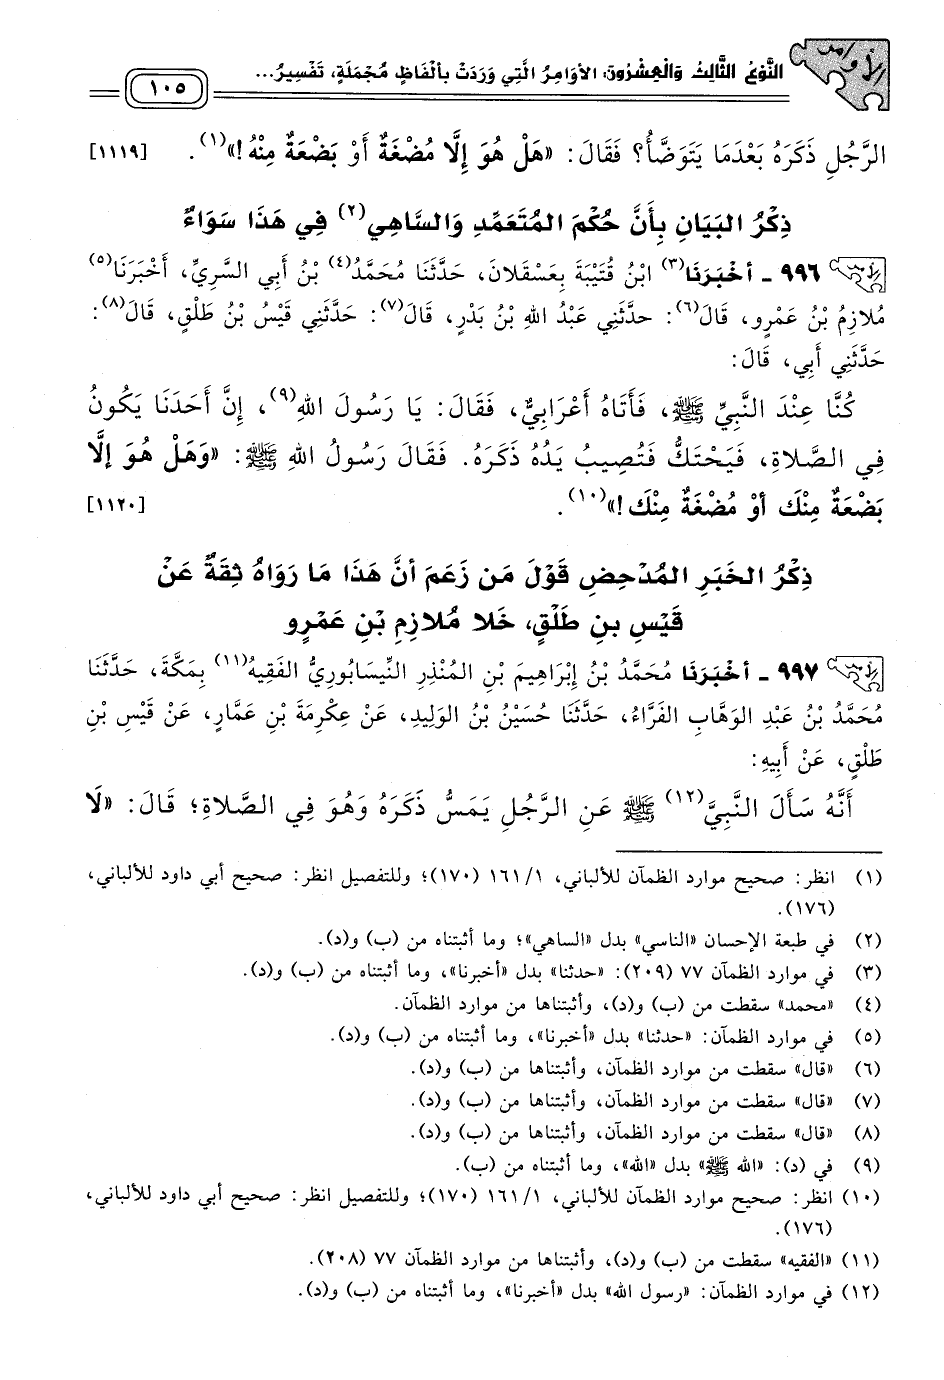 الأوامر
النَّوْعُ الثَّالِثُ وَالْعِشْرُونَ: الأَوَامِرُ الَّتِي وَرَدَتْ بِأَلْفَاظٍ مُجْمَلَةٍ، تَفْسِيرُ...
١٠٥
الرَّجُلِ ذَكَرَهُ بَعْدَمَا يَتَوَضَّأُ؟ فَقَالَ: «هَلْ هُوَ إِلَّا مُضْغَةٌ أَوْ بَضْعَةٌ مِنْهُ!»(١). [١١١٩]
ذِكْرُ البَيَانِ بِأَنَّ حُكْمَ المُتَعَمِّدِ وَالسَّاهِي(٢) فِي هَذَا سَوَاءٌ
٩٩٦ - أَخْبَرَنَا(٣) ابْنُ قُتَيْبَةَ بِعَسْقَلَانَ، حَدَّثَنَا مُحَمَّدُ(٤) بْنُ أَبِي السَّرِيِّ، أَخْبَرَنَا(٥)
مُلَازِمُ بْنُ عَمْرٍو، قَالَ(٦): حدَّثَنِي عَبْدُ اللهِ بْنُ بَدْرٍ، قَالَ(٧): حَدَّثَنِي قَيْسُ بْنُ طَلْقٍ، قَالَ(٨):
حَدَّثَنِي أَبِي، قَالَ:
كُنَّا عِنْدَ النَّبِيِّ ﷺ، فَأَتَاهُ أَعْرَابِيٌّ، فَقَالَ: يَا رَسُولَ اللهِ(٩)، إِنَّ أَحَدَنَا يَكُونُ
فِي الصَّلَاةِ، فَيَحْتَكُّ فَتُصِيبُ يَدُهُ ذَكَرَهُ. فَقَالَ رَسُولُ اللهِ ﷺ: «وَهَلْ هُوَ إِلَّا
بَضْعَةٌ مِنْكَ أَوْ مُضْغَةٌ مِنْكَ!»(١٠). [١١٢٠]
ذِكْرُ الخَبَرِ المُدْحِضِ قَوْلَ مَن زَعَمَ أَنَّ هَذَا مَا رَوَاهُ ثِقَةٌ عَنْ
قَيْسِ بنِ طَلْقٍ، خَلَا مُلَازِمِ بْنِ عَمْرٍو
٩٩٧ - أَخْبَرَنَا مُحَمَّدُ بْنُ إِبْرَاهِيمَ بْنِ المُنْذِرِ النَّيْسَابُورِيُّ الفَقِيهُ(١١) بِمَكَّةَ، حَدَّثَنَا
مُحَمَّدُ بْنُ عَبْدِ الوَهَّابِ الفَرَّاءُ، حَدَّثَنَا حُسَيْنُ بْنُ الوَلِيدِ، عَنْ عِكْرِمَةَ بْنِ عَمَّارٍ، عَنْ قَيْسِ بْنِ
طَلْقٍ، عَنْ أَبِيهِ:
أَنَّهُ سَأَلَ النَّبِيَّ(١٢) ﷺ عَنِ الرَّجُلِ يَمَسُّ ذَكَرَهُ وَهُوَ فِي الصَّلَاةِ؛ قَالَ: «لَا
(١) انظر: صحيح موارد الظمآن للألباني، ١/ ١٦١ (١٧٠)؛ وللتفصيل انظر: صحيح أبي داود للألباني،
(١٧٦).
(٢) في طبعة الإحسان «الناسي» بدل «الساهي»؛ وما أثبتناه من (ب) و(د).
(٣) في موارد الظمآن ٧٧ (٢٠٩): «حدثنا» بدل «أخبرنا»، وما أثبتناه من (ب) و(د).
(٤) «محمد» سقطت من (ب) و(د)، وأثبتناها من موارد الظمآن.
(٥) في موارد الظمآن: «حدثنا» بدل «أخبرنا»، وما أثبتناه من (ب) و(د).
(٦) «قال» سقطت من موارد الظمآن، وأثبتناها من (ب) و(د).
(٧) «قال» سقطت من موارد الظمآن، وأثبتناها من (ب) و(د).
(٨) «قال» سقطت من موارد الظمآن، وأثبتناها من (ب) و(د).
(٩) في (د): «الله ﷺ» بدل «الله»، وما أثبتناه من (ب).
(١٠) انظر: صحيح موارد الظمآن للألباني، ١/ ١٦١ (١٧٠)؛ وللتفصيل انظر: صحيح أبي داود للألباني،
(١٧٦).
(١١) «الفقيه» سقطت من (ب) و(د)، وأثبتناها من موارد الظمآن ٧٧ (٢٠٨).
(١٢) في موارد الظمآن: «رسول الله» بدل «أخبرنا»، وما أثبتناه من (ب) و(د).